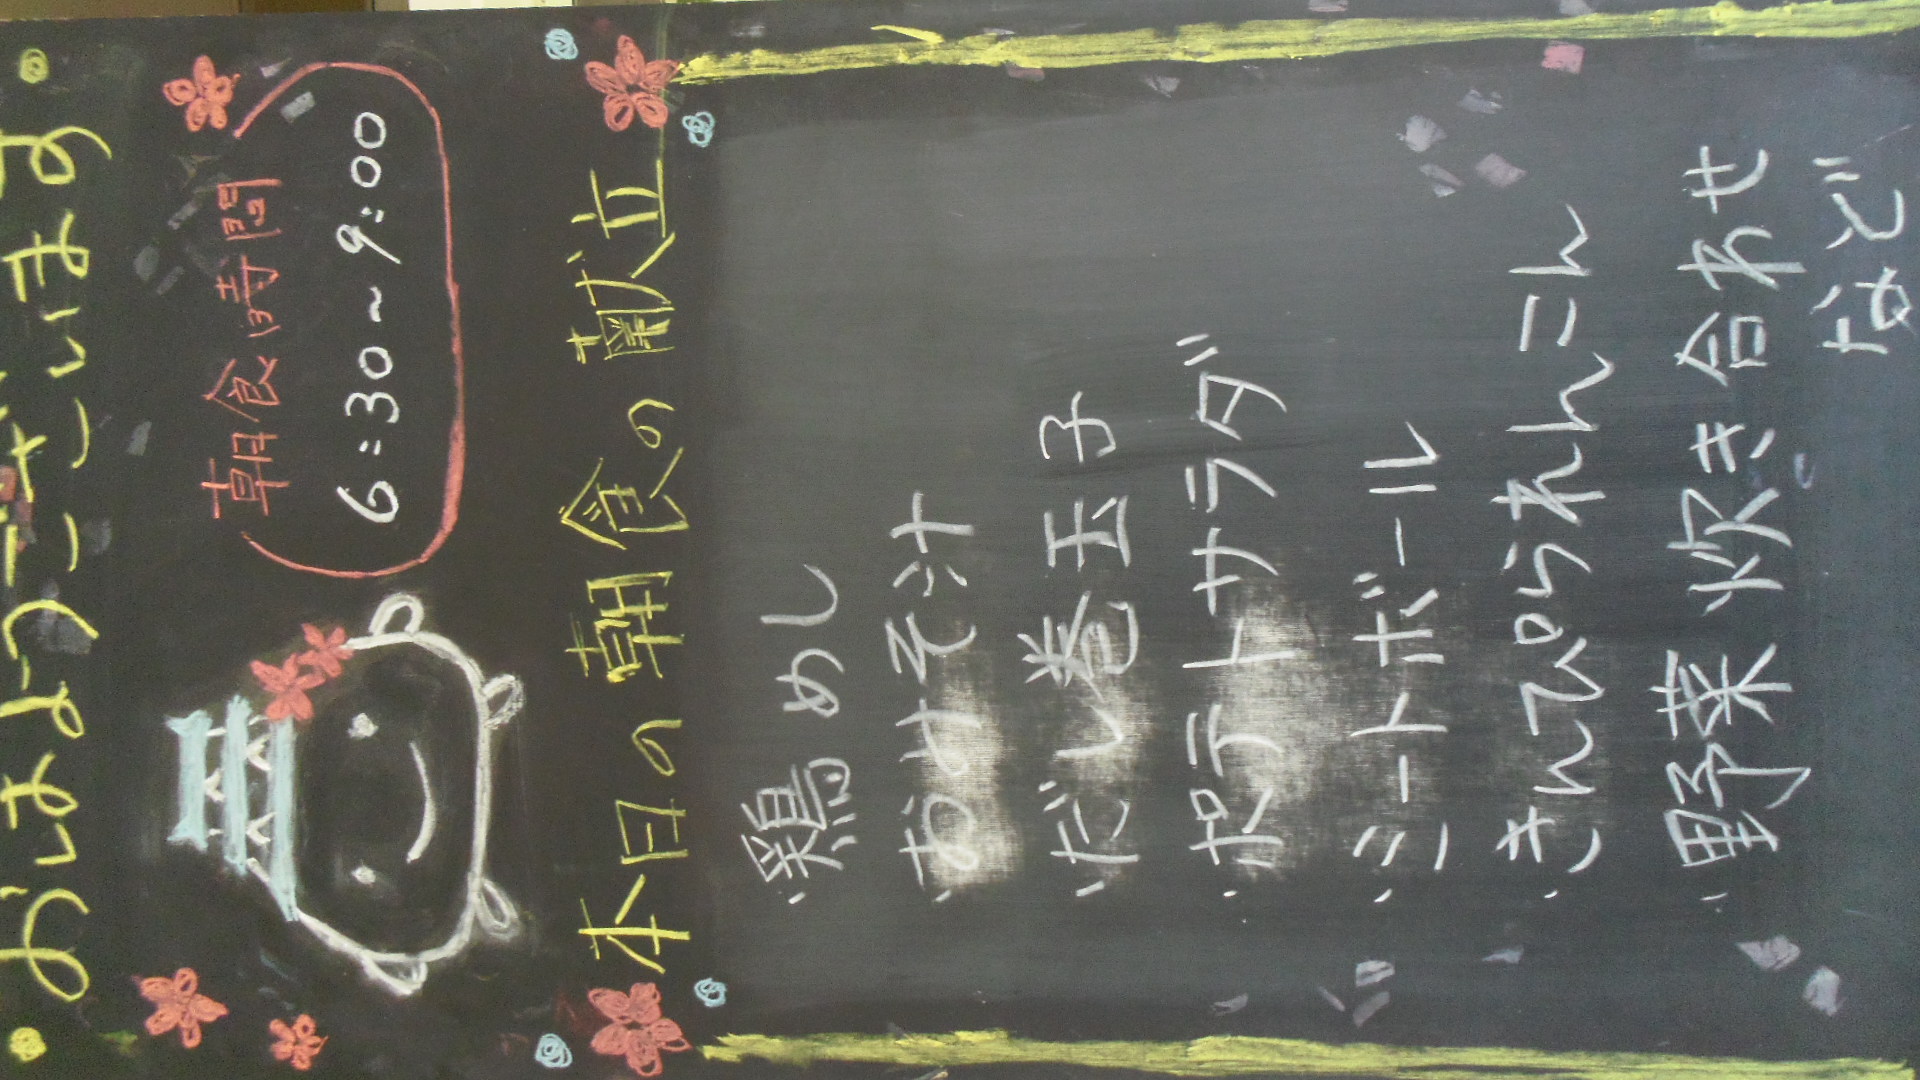 おはようございます
朝食時間
6:30~9:00
本日の朝食の献立
・鶏めし
・おみそ汁
・だし巻玉子
・ポテトサラダ
・ミートボール
・きんぴられんこん
・野菜炊き合わせ
など